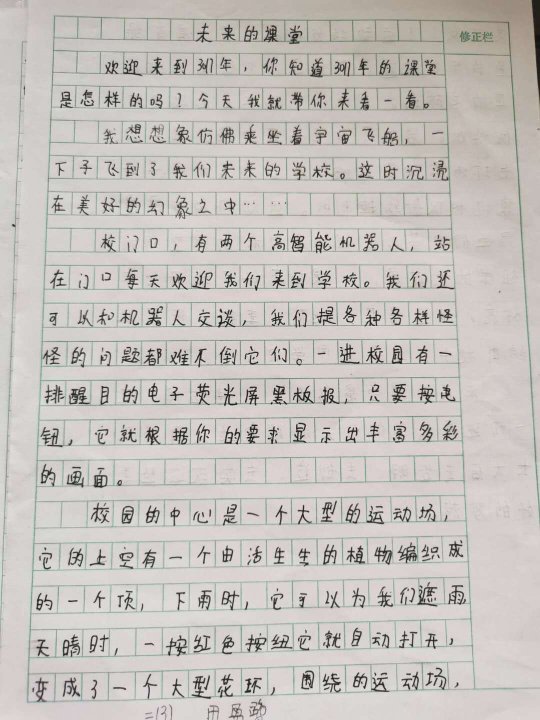 未来的课堂
修正栏
欢迎来到3017年，你知道3017年的课堂
是怎样的吗？今天我就带你来看一看。
我想想象仿佛乘坐着宇宙飞船，一
下子飞到了我们未来的学校。这时沉浸
在美好的幻象之中……
校门口，有两个高智能机器人，站
在门口每天欢迎我们来到学校。我们还
可以和机器人交谈，我们提各种各样怪
怪的问题都难不倒它们。一进校园有一
排醒目的电子荧光屏黑板报，只要按电
钮，它就根据你的要求显示出丰富多彩
的画面。
校园的中心是一个大型的运动场，
它的上空有一个由活生生的植物编织成
的一个顶，下雨时，它可以为我们遮雨
天晴时，一按红色按纽它就自动打开，
变成了一个大型花环，围绕的运动场，